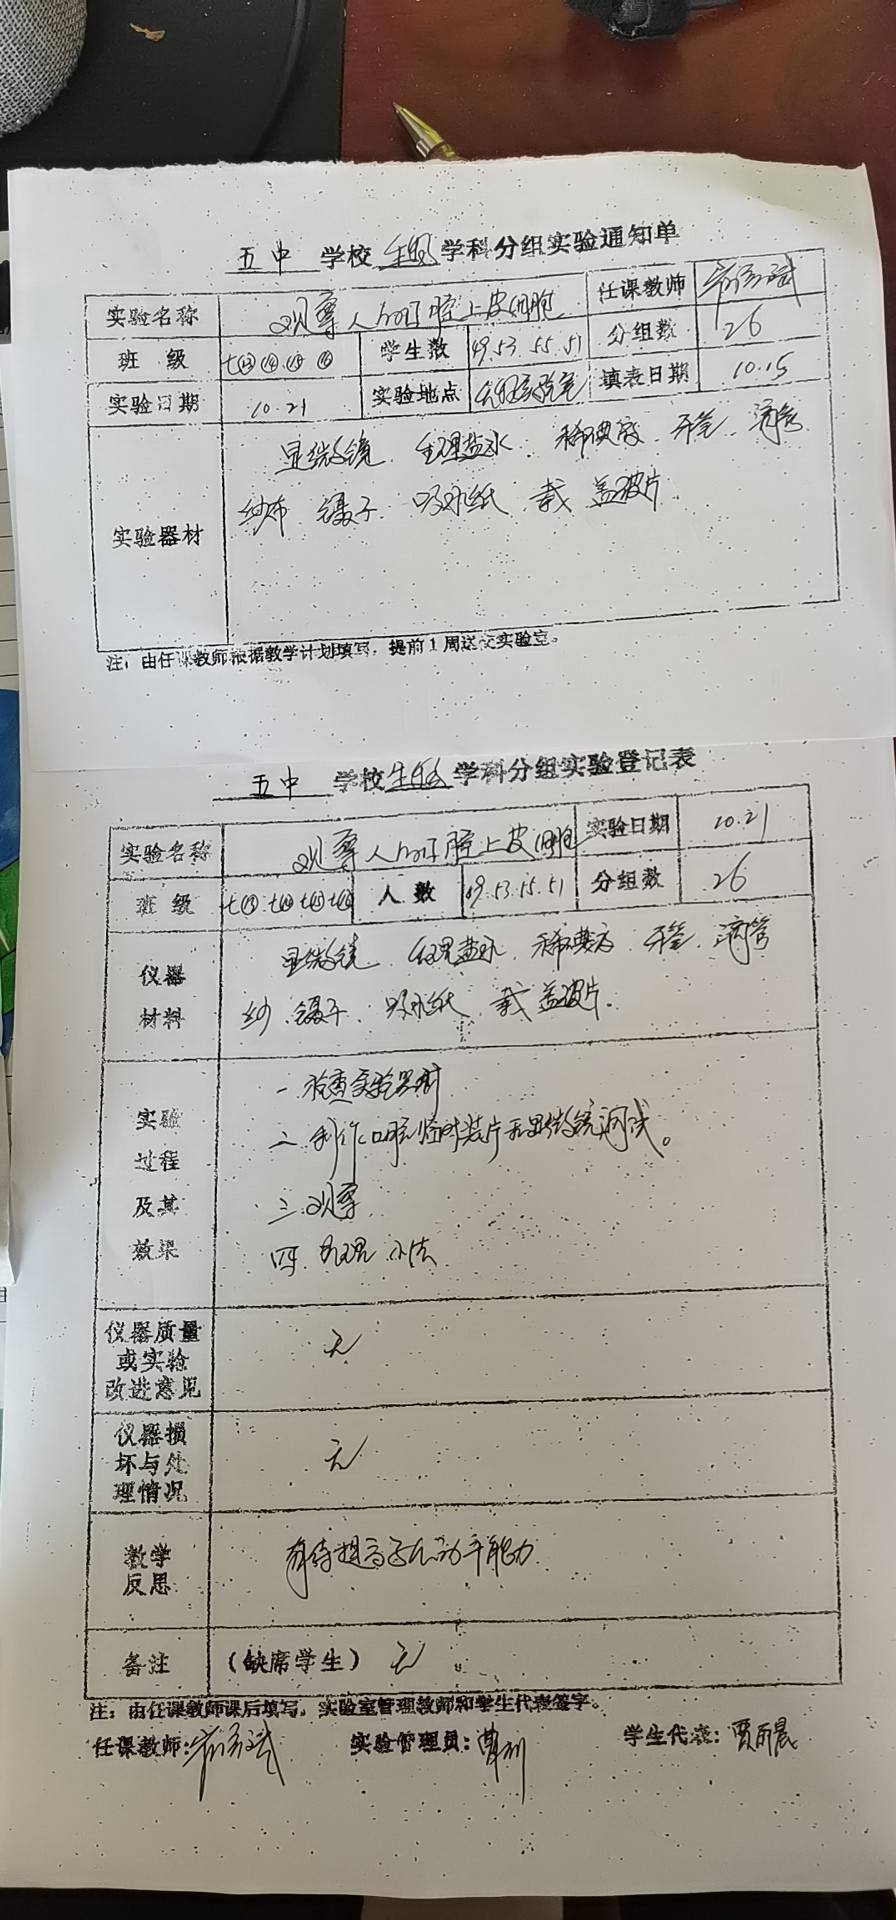 五中 学校 生物 学科分组实验通知单
实验名称 观察人的口腔上皮细胞 任课教师
班 级 七⑬ ⑭ ⑮ ⑯ 学生数 49.53.55.51 分组数 26
实验日期 10.21 实验地点 生物实验室 填表日期 10.15
显微镜 生理盐水 稀碘液 牙签 滴管
纱布 镊子 吸水纸 载 盖玻片
实验器材
注：由任课教师根据教学计划填写，提前1周送交实验室。
五中 学校 生物 学科分组实验登记表
实验名称 观察人的口腔上皮细胞 实验日期 10.21
班 级 七⑬ 七⑭ 七⑮ 七⑯ 人 数 49.53.55.51 分组数 26
仪器 显微镜 生理盐水 稀碘液 牙签 滴管
材料 纱 镊子 吸水纸 载 盖玻片
一 检查实验器材
实验 二 制作口腔临时装片 显微镜调试。
过程
及其 三 观察
效果 四 整理 小结
仪器质量
或实验 无
改进意见
仪器损
坏与处 无
理情况
教学 有待提高学生动手能力
反思
备注 (缺席学生) 无
注：由任课教师课后填写，实验室管理教师和学生代表签字。
任课教师: 实验管理员: 学生代表: 贾雨晨